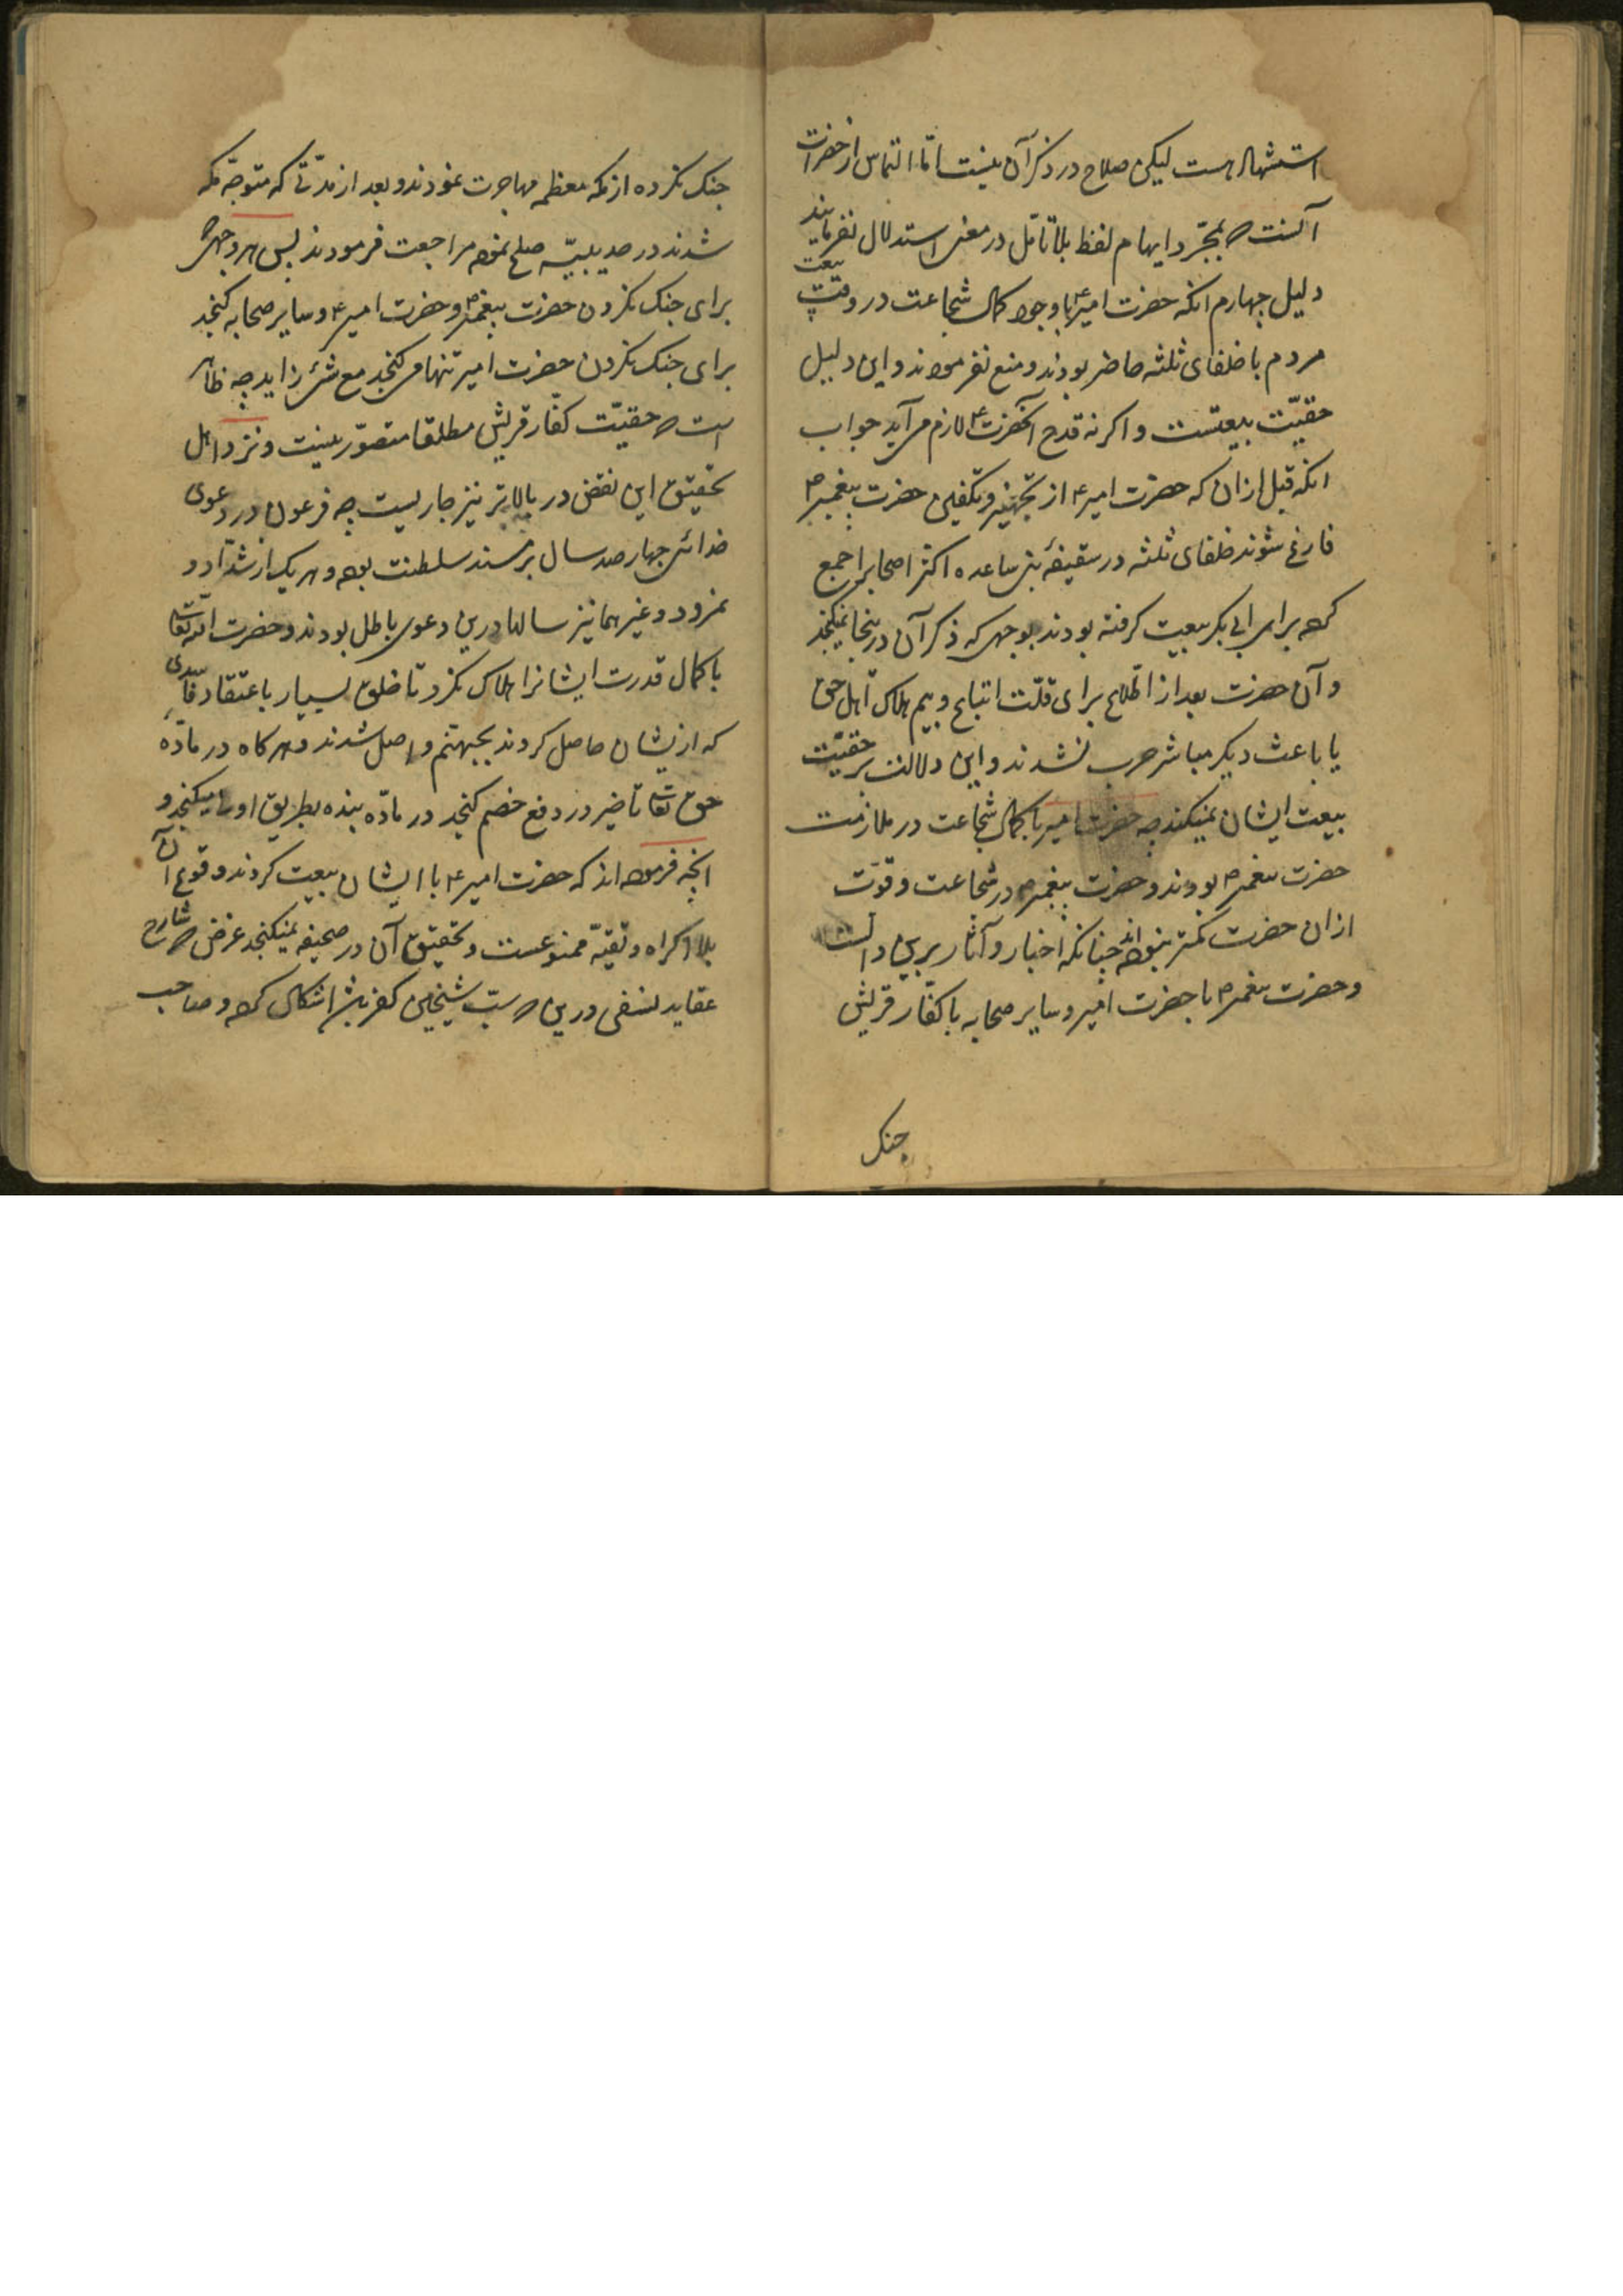 استشهاد هست لیکن صلاح در ذکر آن نیست اما التماس از حضرات
آنست که بمجرّد ایهام لفظ بلا تأمّل در معنی استدلال نفرمایند
دلیل چهارم انکه حضرت امیر ع باوجود کمال شجاعت در وقت بیعت
مردم با خلفای ثلثه حاضر بودند و منع نفرمودند و این دلیل
حقیّت بیعتست و اگر نه قدح آنحضرت ع لازم می آید جواب
انکه قبل ازان که حضرت امیر ع از تجهیز و تکفین حضرت پیغمبر ص
فارغ شوند خلفای ثلثه در سقیفهٔ بنی ساعده اکثر اصحاب را جمع
کرده برای ابی بکر بیعت کرفته بودند بوجهی که ذکر آن درینجا نمیکنجد
و آن حضرت بعد از اطلاع برای قلّت اتباع و بیم هلاک اهل حق
یا باعث دیکر مباشر حرب نشدند و این دلالت بر حقیّت
بیعت ایشان نمیکند چه حضرت امیر با کمال شجاعت در ملازمت
حضرت پیغمبر ص بودند و حضرت پیغمبر ص در شجاعت و قوّت
ازان حضرت کمتر نبوده اند چنانکه اخبار و آثار برین دالست
و حضرت پیغمبر ص با حضرت امیر و سایر صحابه با کفّار قریش
جنک
جنک نکرده از مکه معظمه مهاجرت نمودند و بعد از مدّتی که متوجّه مکه
شدند در حدیبیّه صلح نموده مراجعت فرمودند پس هر وجهی که
برای جنک نکردن حضرت پیغمبر ص و حضرت امیر ع و سایر صحابه کنجد
برای جنک نکردن حضرت امیر تنها می کنجد مع شئ زاید چه ظاهر
است که حقیّت کفّار قریش مطلقا متصوّر نیست و نزد اهل
تحقیق این نقض در بالاتر نیز جاریست چه فرعون در دعوی
خدائی چهار صد سال بر مسند سلطنت بوده و هر یک از شدّاد و
نمرود و غیرهما نیز سالها درین دعوی باطل بودند و حضرت الله تعالی
با کمال قدرت ایشانرا هلاک نکرد تا خلق بسیار باعتقاد فاسدی
که ازیشان حاصل کردند بجهنّم واصل شدند و هر کاه در مادّه
حق تعالی تاخیر در دفع خصم کنجد در مادّه بنده بطریق اولی میکنجد و
انچه فرموده اند که حضرت امیر ع با ایشان بیعت کردند وقوع آن
بلا اکراه و تقیّه ممنوعست و تحقیق آن در صحیفه نمیکنجد غرض که شارح
عقاید نسفی درین که سبّ شیخین کفر باشد اشکال کرده و صاحب